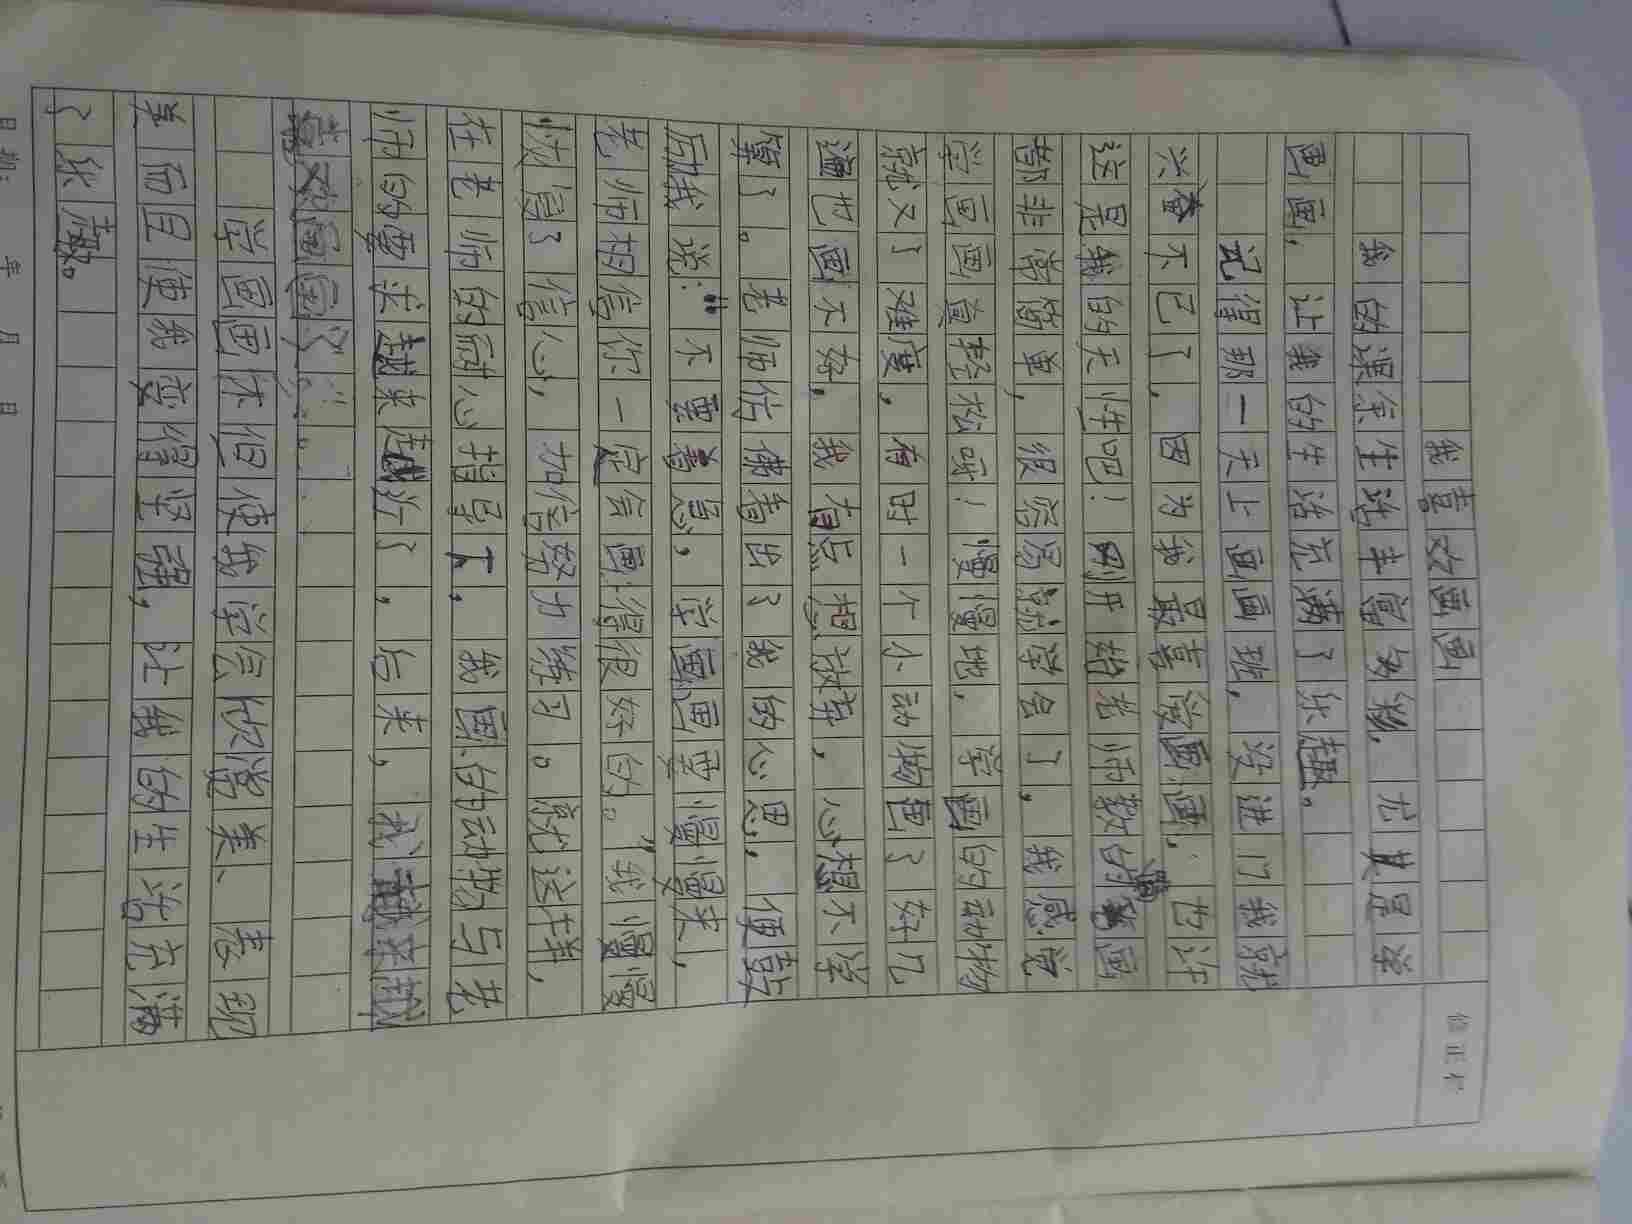 我喜欢画画
我的课余生活丰富多彩，尤其是学
画画，让我的生活充满了乐趣。
记得那一天上画画班，没进门我就
兴奋不已了，因为我最喜欢画画，也许
这是我的天性吧！刚开始老师教的画
都非常简单，很容易就学会了，我感觉
学画画真轻松呀！慢慢地，学画的动物
就又了难度，有时一个小动物画了好几
遍也画不好，我有点想放弃，心想不学
算了。老师仿佛看出了我的心思，便鼓
励我说：“不要着急，学画画要慢慢来，
老师相信你一定会画得很好的。”我慢慢
恢复了信心，加倍努力练习。就这样，
在老师的耐心指导下，我画的动物与老
师的要求越来越近了，后来，我越来越
喜欢画画了……。
学画画不但使我学会欣赏美、表现
美而且使我变得坚强，让我的生活充满
了乐趣。
修正栏
日期： 年 月 日